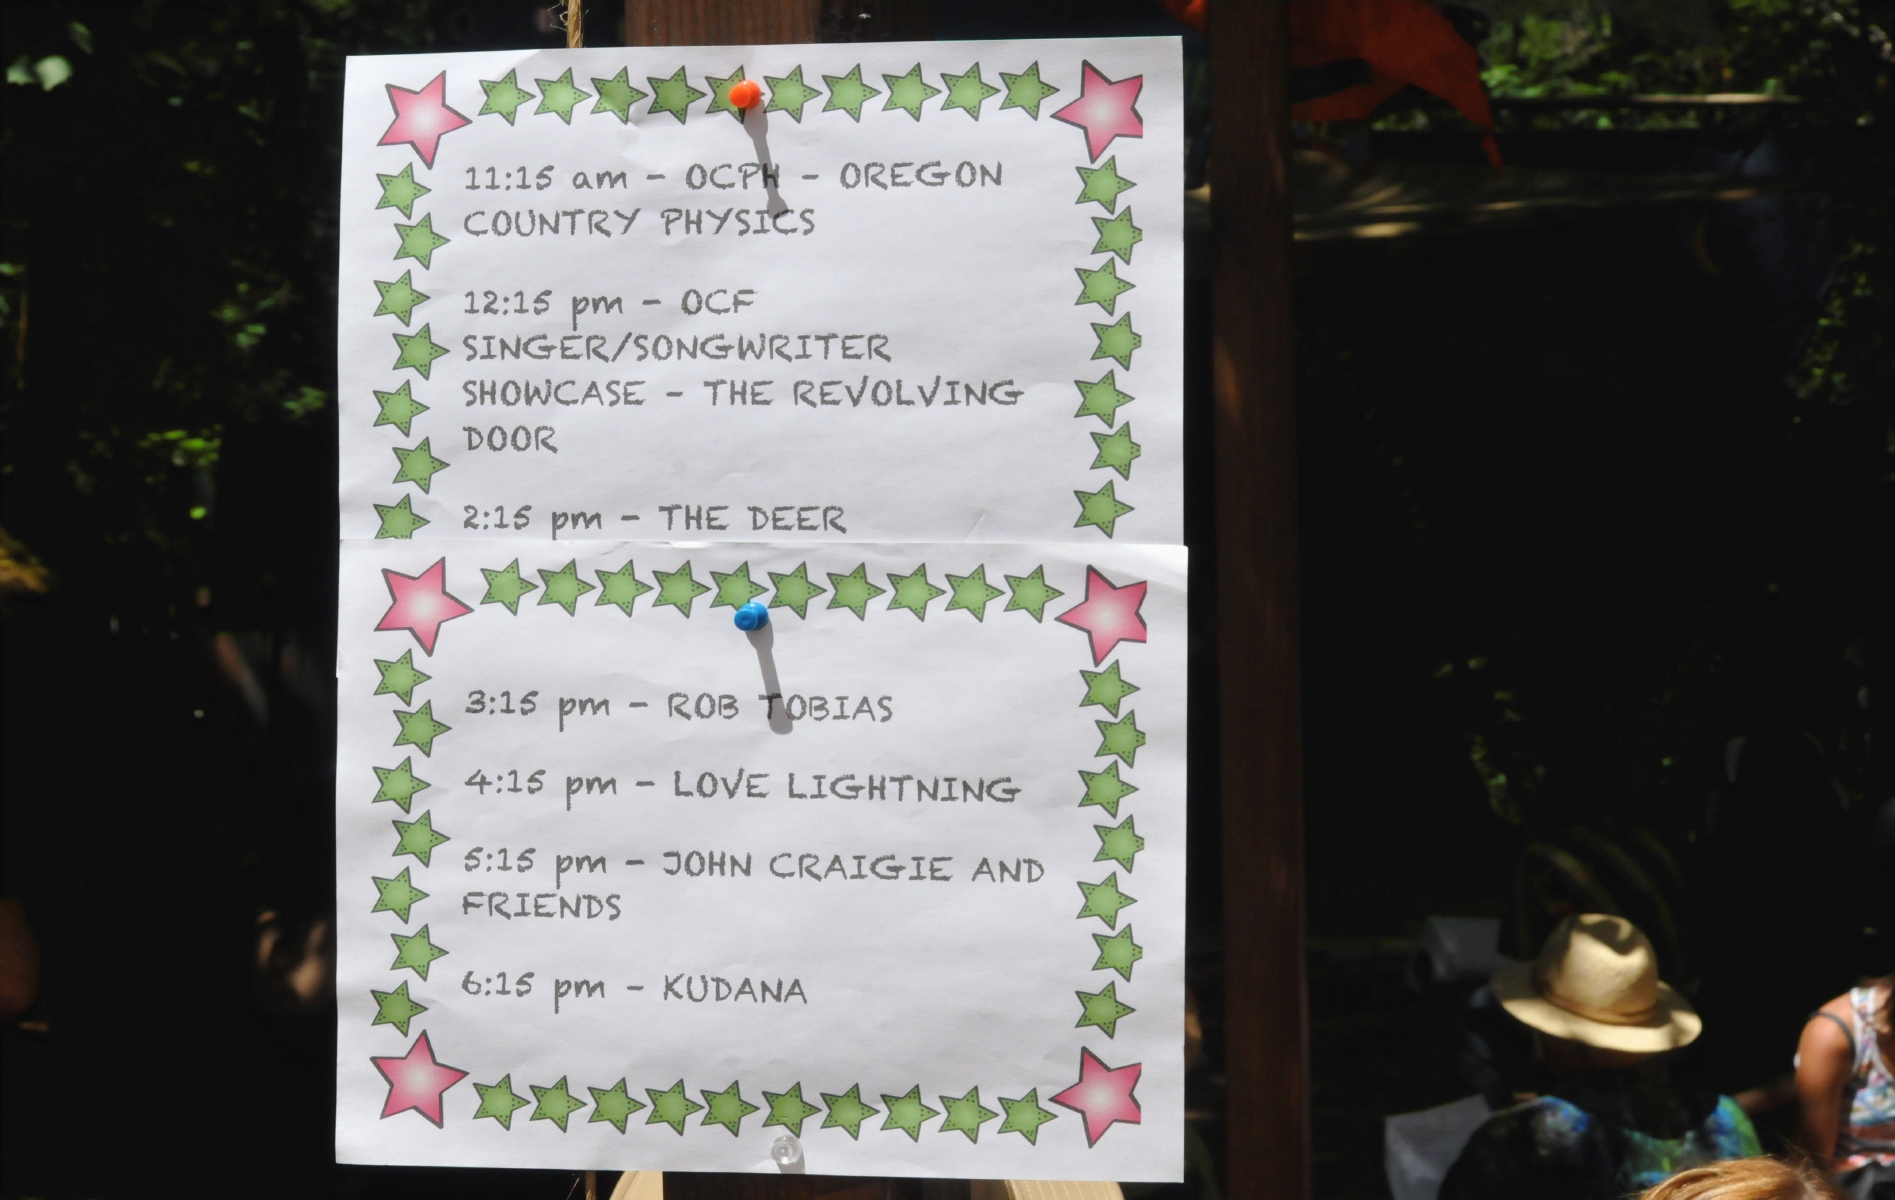 11:15 am - OCPH - OREGON
COUNTRY PHYSICS
12:15 pm - OCF
SINGER/SONGWRITER
SHOWCASE - THE REVOLVING
DOOR
2:15 pm - THE DEER
3:15 pm - ROB TOBIAS
4:15 pm - LOVE LIGHTNING
5:15 pm - JOHN CRAIGIE AND
FRIENDS
6:15 pm - KUDANA